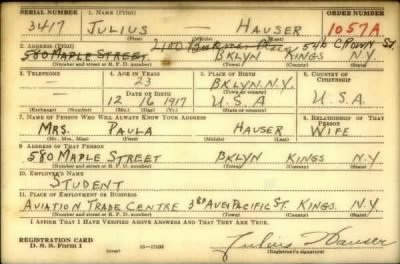 SERIAL NUMBER 1. NAME (Print) ORDER NUMBER
3417 JULIUS — HAUSER 1057A
2. ADDRESS (Print) 2100 546 CROWN St.
580 MAPLE STREET BKLYN KINGS N.Y.
(Number and street or R. F. D. number) (Town) (County) (State)
3. TELEPHONE 4. AGE IN YEARS 5. PLACE OF BIRTH 6. COUNTRY OF CITIZENSHIP
— 23 BKLYN. N.Y.
DATE OF BIRTH (Town or county)
12 16 1917 U.S.A U.S.A.
(Exchange) (Number) (Mo.) (Day) (Yr.) (State or country)
7. NAME OF PERSON WHO WILL ALWAYS KNOW YOUR ADDRESS 8. RELATIONSHIP OF THAT PERSON
MRS. PAULA HAUSER WIFE
(Mr., Mrs., Miss) (First) (Middle) (Last)
9. ADDRESS OF THAT PERSON
580 MAPLE STREET BKLYN KINGS N.Y
(Number and street or R. F. D. number) (Town) (County) (State)
10. EMPLOYER'S NAME
STUDENT
11. PLACE OF EMPLOYMENT OR BUSINESS
AVIATION TRADE CENTRE 3RD AVE & PACIFIC ST. KINGS. N.Y
(Number and street or R. F. D. number) (Town) (County) (State)
I AFFIRM THAT I HAVE VERIFIED ABOVE ANSWERS AND THAT THEY ARE TRUE.
REGISTRATION CARD
D. S. S. Form 1 (over) 16—17105 Julius Hauser
(Registrant's signature)